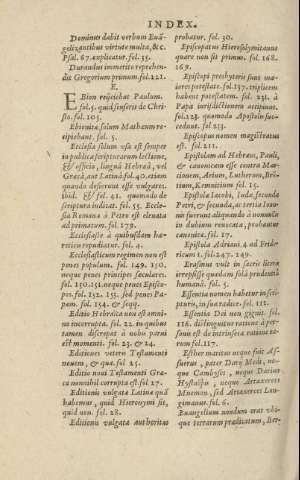 INDEX.
Dominus dabit verbum Euã-
gelizantibus virtute multa, &c.
Psal. 67. explicatur. fol. 35.
Durandus immerito reprehen-
dit Gregorium primum. fol. 121.
E.
EBion reijciebat Paulum.
fol. 5. quid senserit de Chri-
sto. fol. 105.
Ebionitæ solum Mathæum re-
cipiebant. fol. 5.
Ecclesia solum usa est semper
in publica scripturarum lectione,
&c officio, lingua Hebræa, vel
Græca, aut Latina fol. 40. etiam
quando deserunt esse vulgares.
ibid. & fol. 41. quomodo de
scriptura iudicat. fol. 55. Eccle-
sia Romana à Petro est eleuata
ad primatum. fol. 179.
Ecclesiastæ à quibusdam hæ-
reticis repudiatur. fol. 4.
Ecclesiasticum regimen non est
penes populum. fol. 149. 150.
neque penes principes seculares.
fol. 150. 151. neque penes Episco-
pos. fol. 152. 153. sed penes Pa-
pam. fol. 154. & seqq.
Editio Hebraica non est omni-
no incorrupta. fol. 22. in quibus
tamen discrepat à nobis parui
est momenti. fol. 23. & 24.
Editiones veteris Testamenti
nouem, & quæ. fol. 25.
Editio noui Testamenti Græ-
ca nonnihil corrupta est fol. 27.
Editionis vulgatæ Latinæ quã
habemus, quid Hieronymi sit,
quid non. fol. 28.
Editionis vulgatæ authoritas
probatur. fol. 30.
Episcopatus Hierosolymitanus
quare non sit primus. fol. 168.
169.
Episcopi presbyteris sunt ma-
iores potestate. fol. 157. triplicem
habent potestatem. fol. 231. à
Papa iurisdictionem accipiunt.
fol. 123. quomodo Apostolis suc-
cedunt. fol 213.
Episcopus nomen magistratus
est. fol. 211.
Epistolam ad Hebræos, Pauli,
& canonicam esse contra Mar-
cionem, Arium, Lutherum, Brē-
tium, Kemnitium fol. 15.
Epistola Iacobi, Iudæ, secunda
Petri, & secunda, ac tertia Ioan-
nis fuerunt aliquando à nonnullis
in dubium reuocatæ, probatur
canonicæ. fol. 17.
Epistola Adriani 4. ad Fride-
ricum 1. fol. 247. 249.
Erasmus vult in sacris literis
irrepsisse quædam sola prudentia
humana. fol. 5.
Essentiæ nomen habetur in scri-
pturis, in sua radice. fol. 112.
Essentia Dei non gignit. fol.
116. distinguitur ratione à per-
sonis est de intrinseca ratione eo-
rum fol. 117.
Esther maritus neque fuit Af-
fuerus, pater Darij Medi, ne-
que Cambyses, neque Darius
Hystaspis, neque Artaxerxes
Mnemon, sed Artaxerxes Lon-
gimanus. fol. 6.
Euangelium nondum erat vbi-
que terrarum prædicatum, Hier-